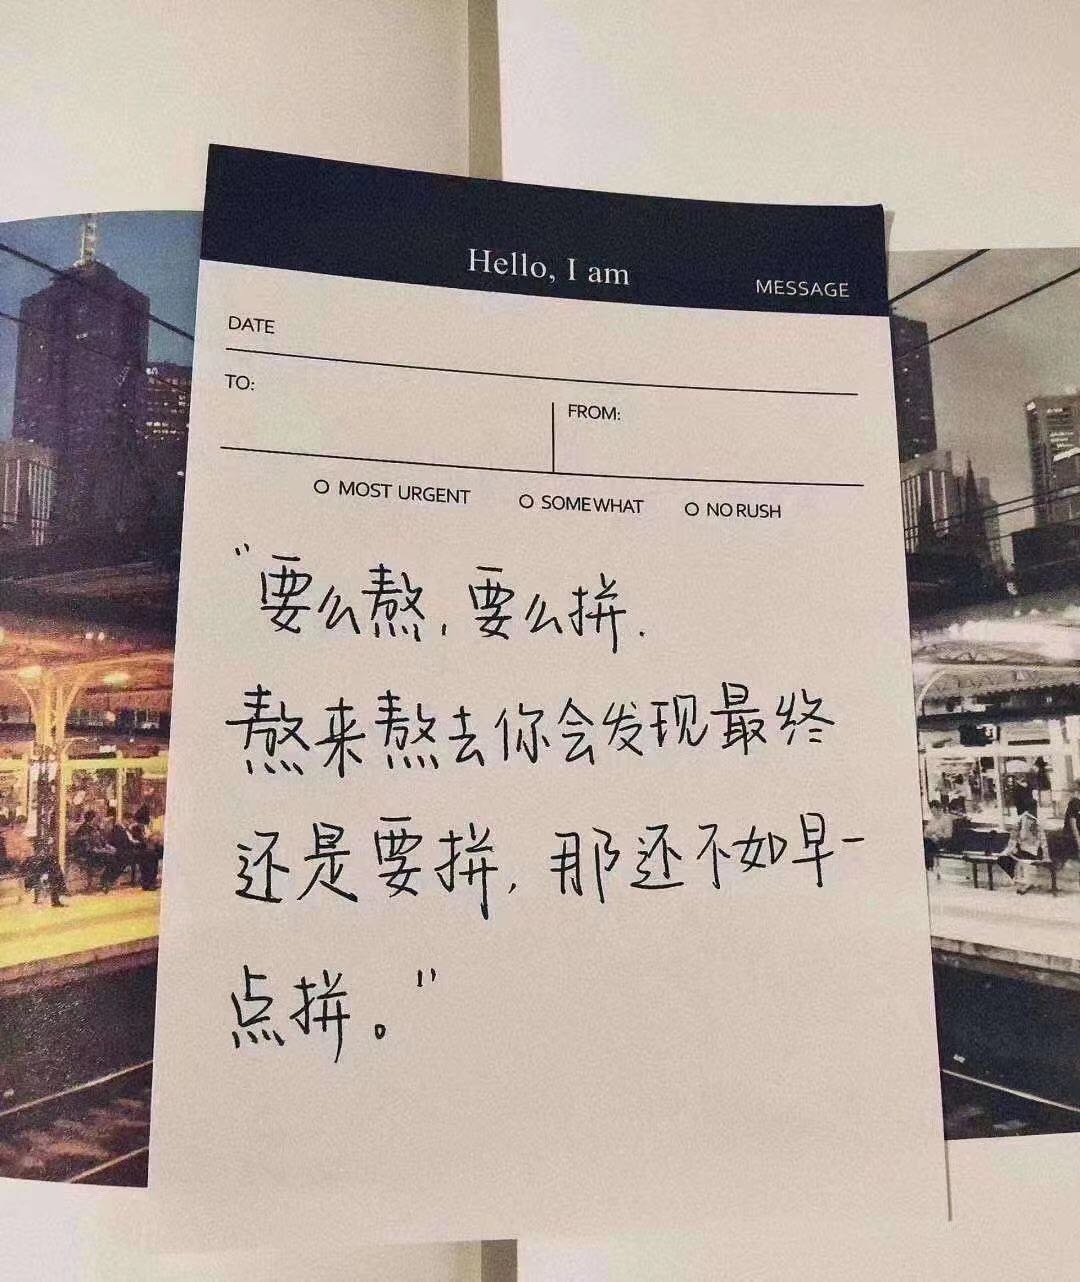 Hello, I am
MESSAGE
DATE
TO:
FROM:
MOST URGENT
SOMEWHAT
NO RUSH
"要么熬,要么拼.
熬来熬去你会发现最终
还是要拼,那还不如早一
点拼。"